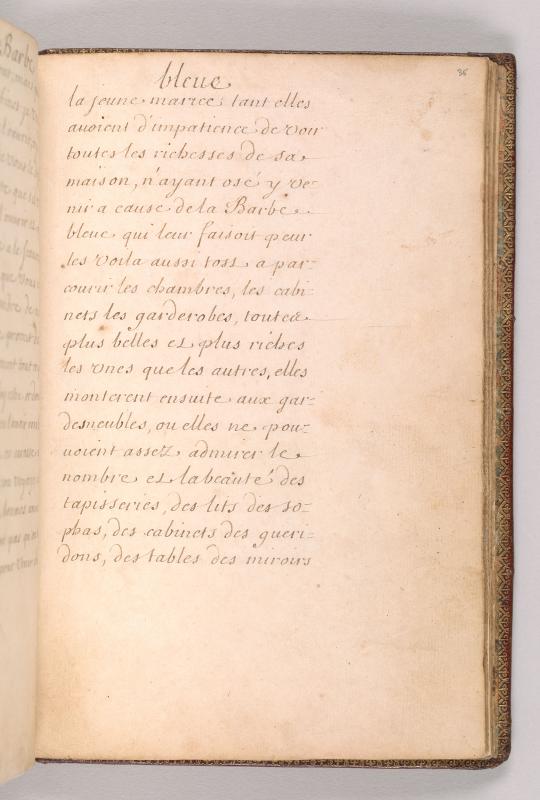 36
bleue
la jeune mariée, tant elles
auoient d'impatience de voir
toutes les richesses de sa
maison, n'ayant osé y ve-
nir a cause de la Barbe
bleue qui leur faisoit peur
les voila aussi tost a par-
courir les chambres, les cabi-
nets les garderobes, toutes
plus belles et plus riches
les vnes que les autres, elles
monterent ensuite aux gar-
desmeubles, ou elles ne pou-
uoient assez admirer le
nombre et la beauté des
tapisseries, des lits des so-
phas, des cabinets des gueri-
dons, des tables des miroirs